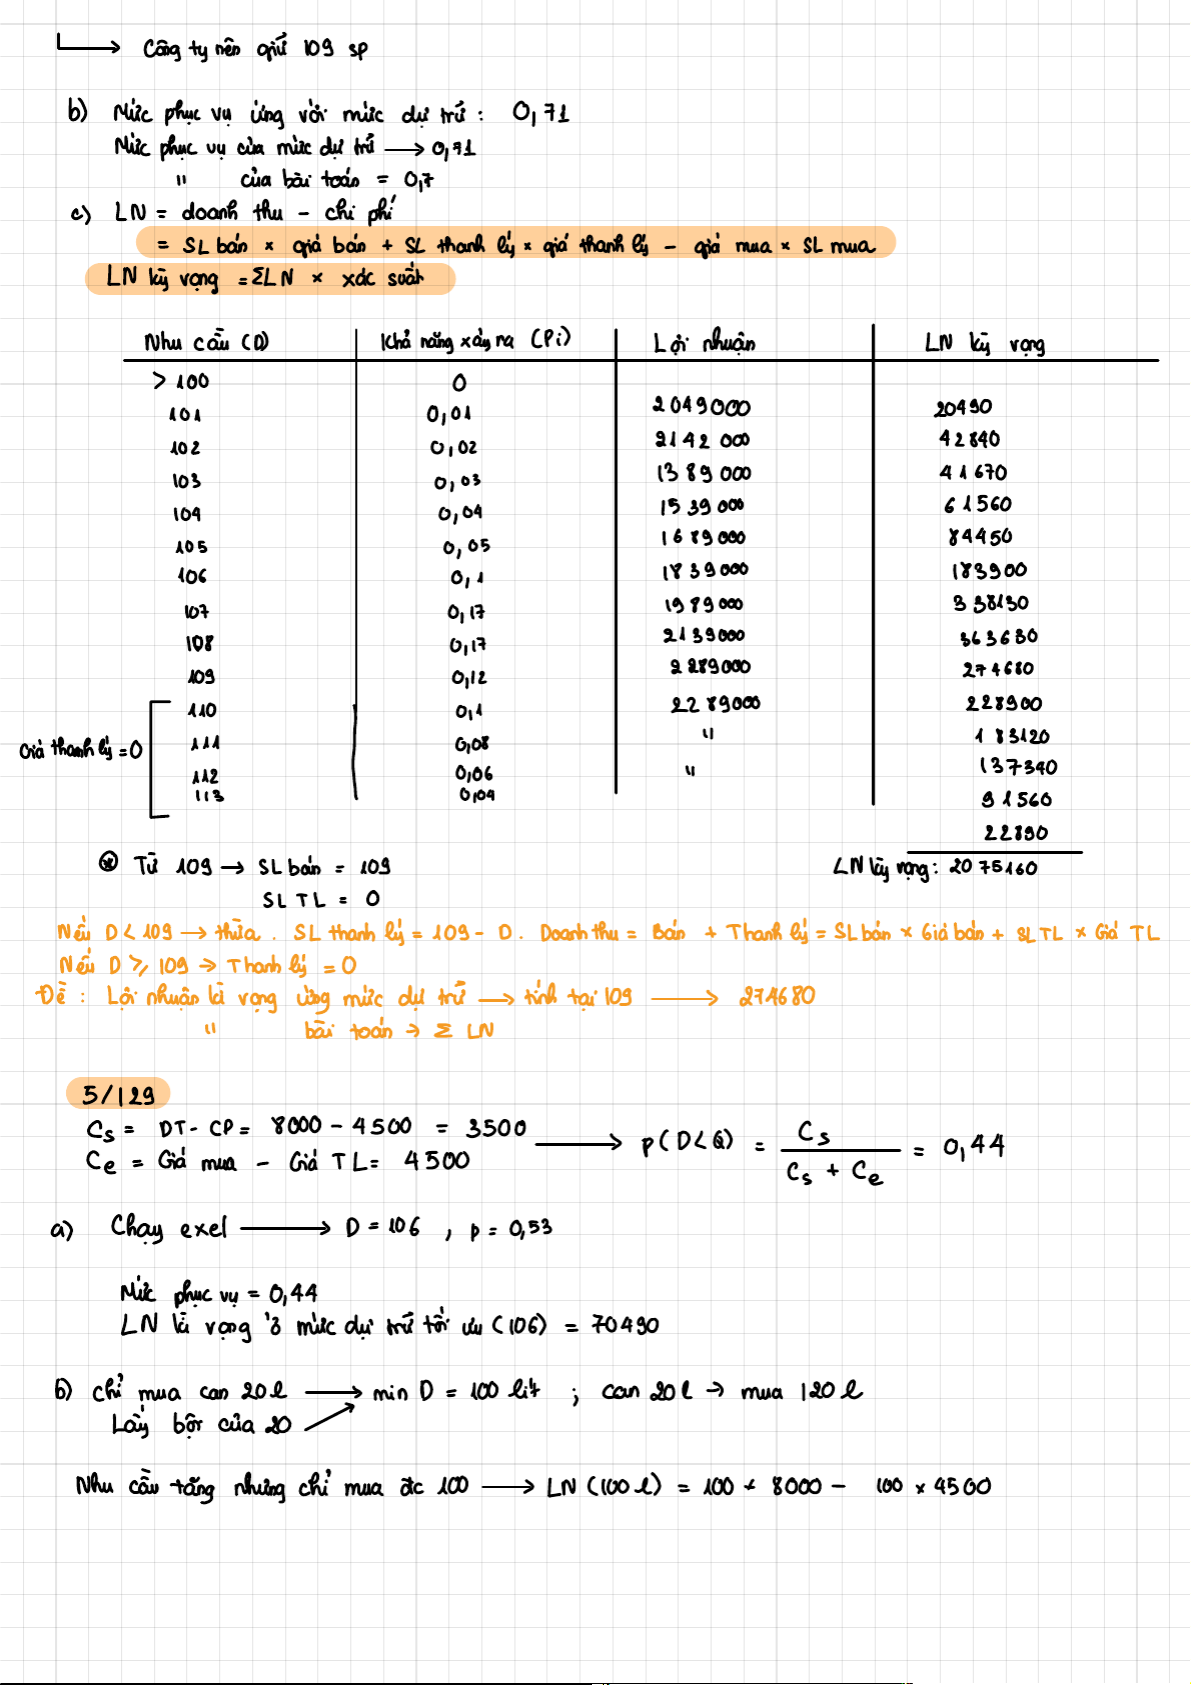 Công ty nên giữ 109 sp
b) Mức phục vụ ứng với mức dự trữ : 0,71
Mức phục vụ của mức dự trữ → 0,71
" của bài toán = 0,7
c) LN = doanh thu - chi phí
= SL bán × giá bán + SL thanh lý × giá thanh lý - giá mua × SL mua
LN kỳ vọng = ΣLN × xác suất
Nhu cầu (D) Khả năng xảy ra (Pi) Lợi nhuận LN kỳ vọng
> 100 0
101 0,01 2049000 20490
102 0,02 2142000 42840
103 0,03 1389000 41670
104 0,04 1539000 61560
105 0,05 1689000 84450
106 0,1 1839000 183900
107 0,17 1989000 338130
108 0,17 2139000 363630
109 0,12 2289000 274680
110 0,1 2289000 228900
Giá thanh lý = 0 111 0,08 " 183120
112 0,06 " 137340
113 0,04 91560
22890
⊗ Từ 109 → SL bán = 109 LN kỳ vọng : 2075160
SL TL = 0
Nếu D < 109 → thừa . SL thanh lý = 109 - D . Doanh thu = Bán + Thanh lý = SL bán × Giá bán + SL TL × Giá TL
Nếu D ≥ 109 → Thanh lý = 0
Đề : Lợi nhuận kì vọng ứng mức dự trữ → tính tại 109 → 274680
" bài toán → Σ LN
5/129
Cs = DT - CP = 8000 - 4500 = 3500 → p(D<Q) = Cs / (Cs + Ce) = 0,44
Ce = Giá mua - Giá TL = 4500
a) Chạy exel → D = 106 , p = 0,53
Mức phục vụ = 0,44
LN kì vọng ở mức dự trữ tối ưu (106) = 70490
b) chỉ mua can 20l → min D = 100 lít ; can 20l → mua 120l
Lấy bội của 20
Nhu cầu tăng nhưng chỉ mua đc 100 → LN (100l) = 100 × 8000 - 100 × 4500